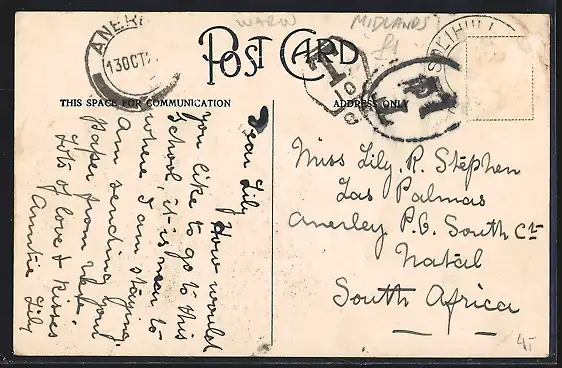 WARW
MIDLANDS
£1
ANER
13 OCT
SOLIHULL
POST CARD
THIS SPACE FOR COMMUNICATION
ADDRESS ONLY
Dear Lily
How would
you like to go to this
School, it is near to
where I am staying.
Am sending you
paper from
Lots of love & kisses
Auntie Lily
Miss Lily. R. Stephen
Las Palmas
Anerley P.O. South Ct
Natal
South Africa
4/-